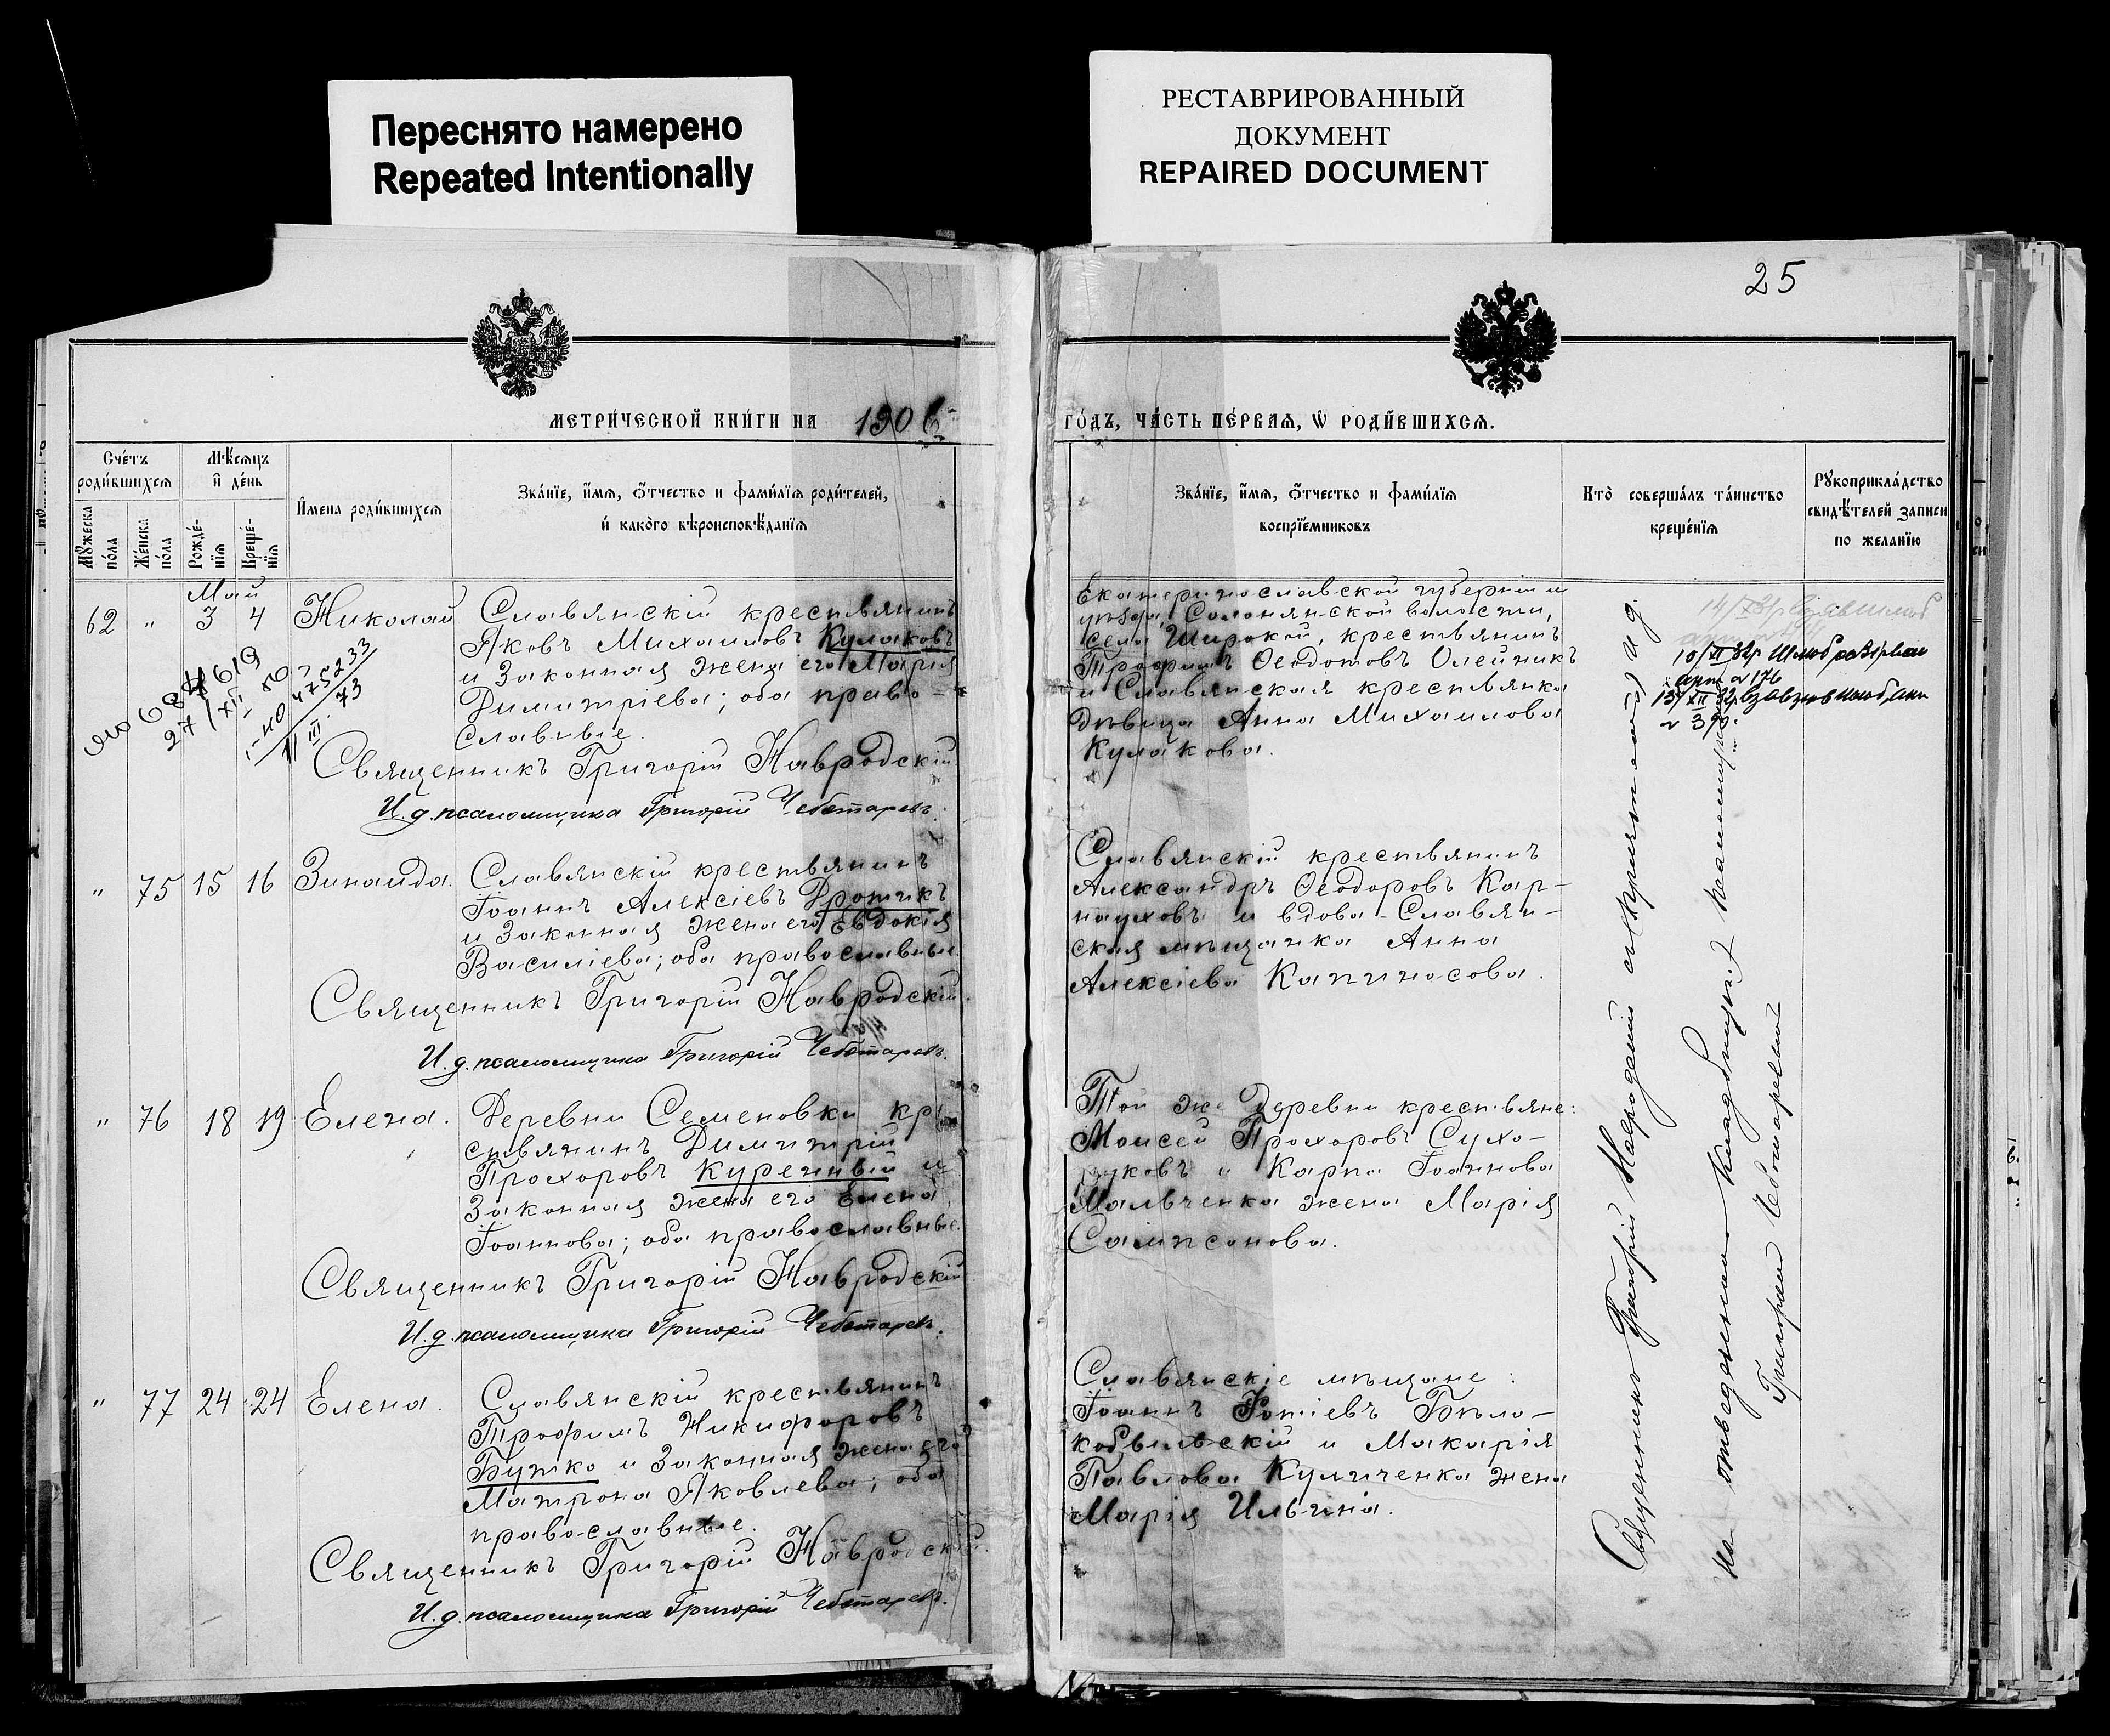 Переснято намерено
Repeated Intentionally
РЕСТАВРИРОВАННЫЙ
ДОКУМЕНТ
REPAIRED DOCUMENT
25
МЕТРИ́ЧЕСКОЙ КНИ́ГИ НА 1906
ГО́ДЪ, ЧА́СТЬ ПЕ́РВАЯ, Ѡ РОДИ́ВШИХСЯ.
Сче́тъ роди́вшихся
Мѣ́сяцъ и де́нь
Мꙋжеска по́ла
Же́нска по́ла
Рожде́нїя
Креще́нїя
Имена роди́вшихся
Зва́нїе, и́мя, о́тчество и фами́лїя роди́телей,
и како́го вѣроисповѣ́данїя
Зва́нїе, и́мя, о́тчество и фами́лїя
воспрїе́мниковъ
Кто̀ соверша́лъ та́инство
креще́нїя
Рꙋкоприкла́дство
свидѣ́телей записи
по жела́нїю
Май
62 " 3 4 Николай
Славянскій крестьянинъ
Яковъ Михаиловъ Кулаковъ
и законная жена его Марія
Димитріева; оба право-
славные.
Священникъ Григорій Навродскій
И. д. псаломщика Григорій Чеботаревъ.
Екатеринославской губерніи и
уѣзда, Солонянской волости,
села Широкой, крестьянинъ
Трофимъ Ѳеодотовъ Олейникъ
и Славянская крестьянка
дѣвица Анна Михаилова
Кулакова.
" 75 15 16 Зинаида.
Славянскій крестьянинъ
Іоаннъ Алексіевъ Дротикъ
и законная жена его Евдокія
Василіева; оба православные.
Священникъ Григорій Навродскій.
И. д. псаломщика Григорій Чеботаревъ.
Славянскій крестьянинъ
Александръ Ѳеодоровъ Кар-
науховъ и вдова-Славян-
ская мѣщанка Анна
Алексіева Капиносова.
" 76 18 19 Елена.
Деревни Семеновки кре
стьянинъ Димитрій
Прохоровъ Куренный и
законная жена его Елена
Іоаннова; оба православные.
Священникъ Григорій Навродскій
И. д. псаломщика Григорій Чеботаревъ.
Той же деревни крестьяне:
Моисей Прохоровъ Сухо-
руковъ и Карпа Іоаннова
Мальченка жена Марія
Сампсонова.
" 77 24 24 Елена.
Славянскій крестьянинъ
Трофимъ Никифоровъ
Бутко и законная жена его
Матрона Яковлева; оба
православные.
Священникъ Григорій Навродскій.
И. д. псаломщика Григорій Чеботаревъ.
Славянскіе мѣщане:
Іоаннъ Фотіевъ Бѣло-
кобыльскій и Макарія
Павлова Куличенка жена
Марія Ильина.
Священникъ Григорій Навродскій и. д.
Григорій Чеботаревъ